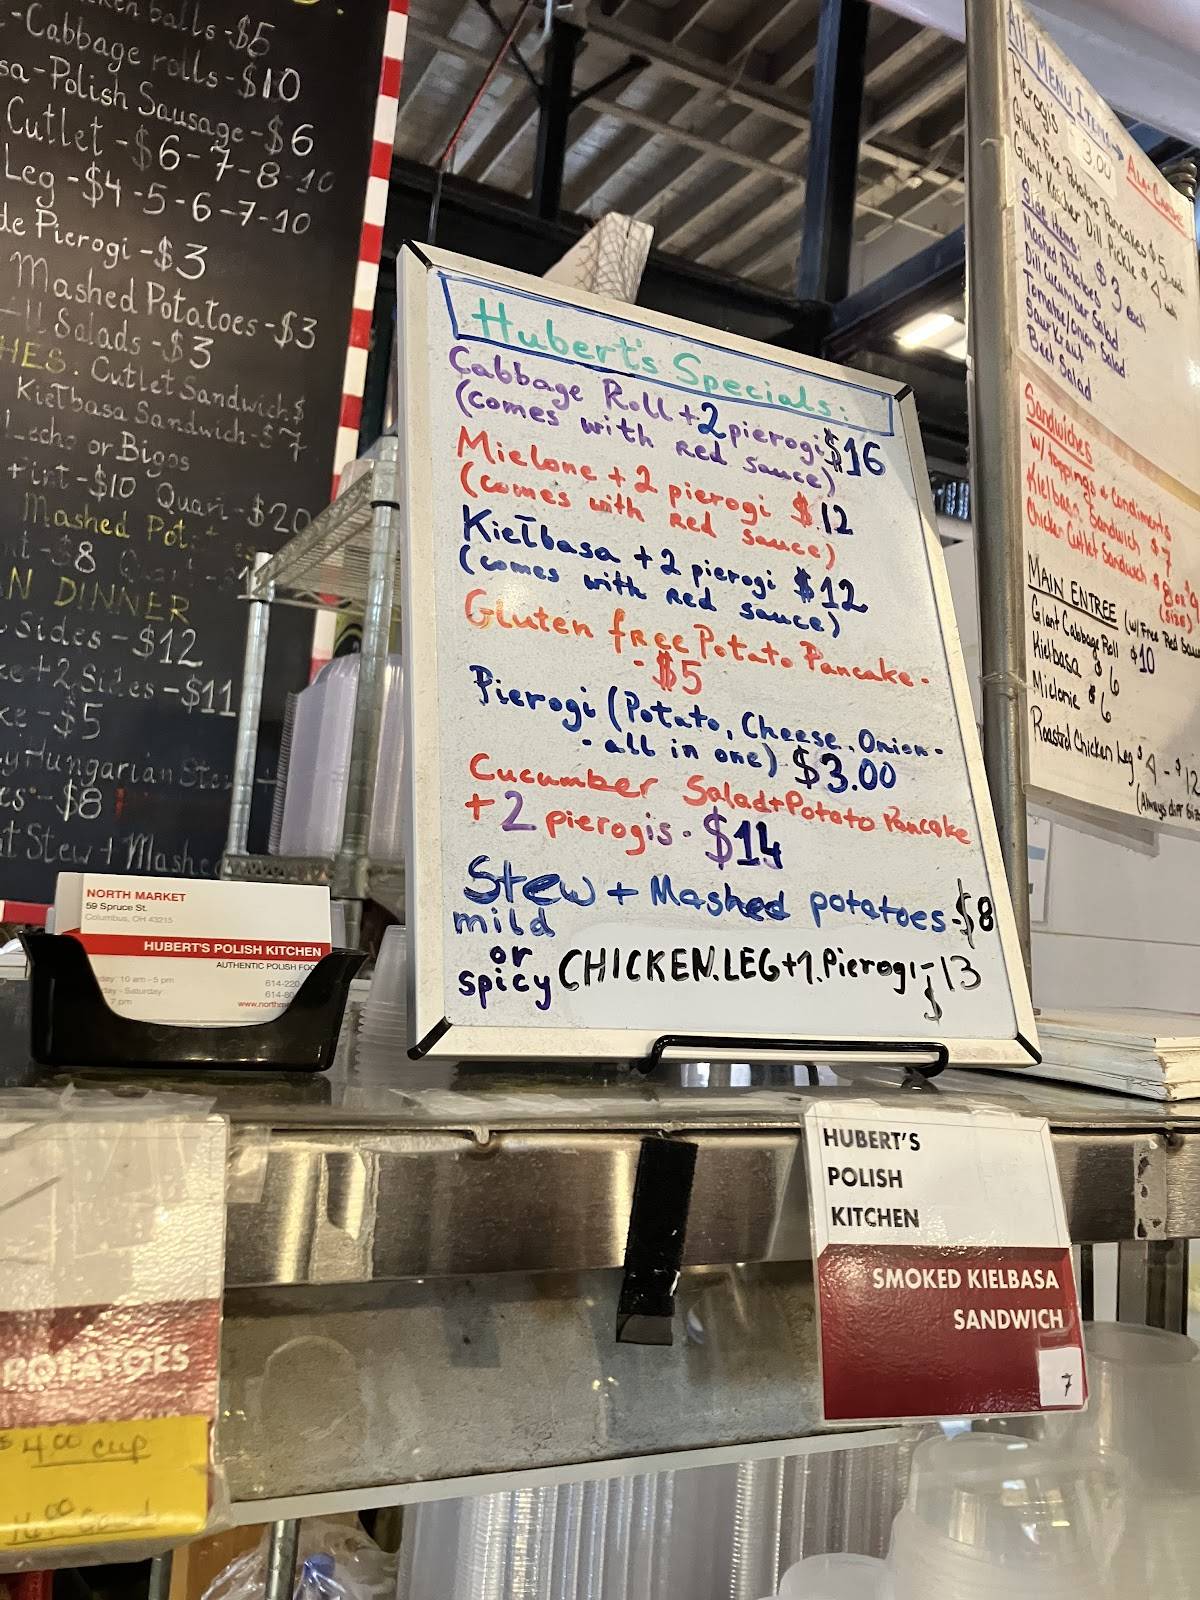 balls-$5
-Cabbage rolls-$10
sa-Polish Sausage-$6
Cutlet-$6-7-8-10
Leg-$4-5-6-7-10
de Pierogi-$3
Mashed Potatoes-$3
Salads-$3
HES. Cutlet Sandwich-$
Kiełbasa Sandwich-$7
or Bigos
-$10 Quart-$20
Mashed Pot
$8
N DINNER
Sides-$12
+2 Sides-$11
-$5
Hungarian Stew +
-$8
Stew + Mashe
Hubert's Specials:
Cabbage Roll+2 pierogi $16
(comes with red sauce)
Mielone + 2 pierogi $12
(comes with red sauce)
Kiełbasa + 2 pierogi $12
(comes with red sauce)
Gluten free Potato Pancake-
-$5
Pierogi (Potato, Cheese, Onion-
-all in one) $3.00
Cucumber Salad+Potato Pancake
+ 2 pierogis-$14
Stew + Mashed potatoes-$8
mild
or
spicy
CHICKEN.LEG+1.Pierogi-$13
All MENU ITEMS→ ALA-CARTE
Pierogis 3.00
Gluten Free Potatoe Pancakes $5 each
Giant Kosher Dill Pickle $4 each
Side Items: $3 each
Mashed Potatoes
Dill cucumber Salad
Tomatoe/onion Salad
Saur Kraut
Beet Salad
Sandwiches
w/ toppings & Condiments
Kielbasa Sandwich $7
Chicken Cutlet Sandwich $8 or 9
(SIZE)
MAIN ENTREE (w/ Free Red Sau
Giant Cabbage Roll $10
Kielbasa $6
Mielonie $6
Roasted Chicken Leg $4 - $12
(Always diff Siz
NORTH MARKET
59 Spruce St.
Columbus, OH 43215
HUBERT'S POLISH KITCHEN
AUTHENTIC POLISH FOO
day: 10 am - 5 pm
614-220
day - Saturday
614-80
7 pm
www.northm
POTATOES
$4.00 cup
HUBERT'S
POLISH
KITCHEN
SMOKED KIELBASA
SANDWICH
7